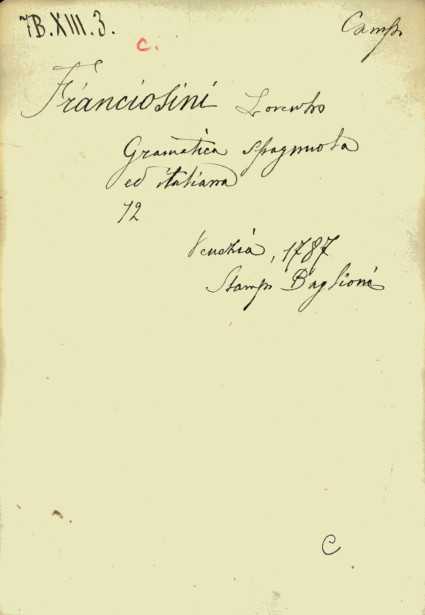 7B.XIII.3.
Camp
c.
Franciosini Lorenzo
Gramatica spagnuola
ed italiana
12
Venezia, 1787
Stamp Baglioni
C